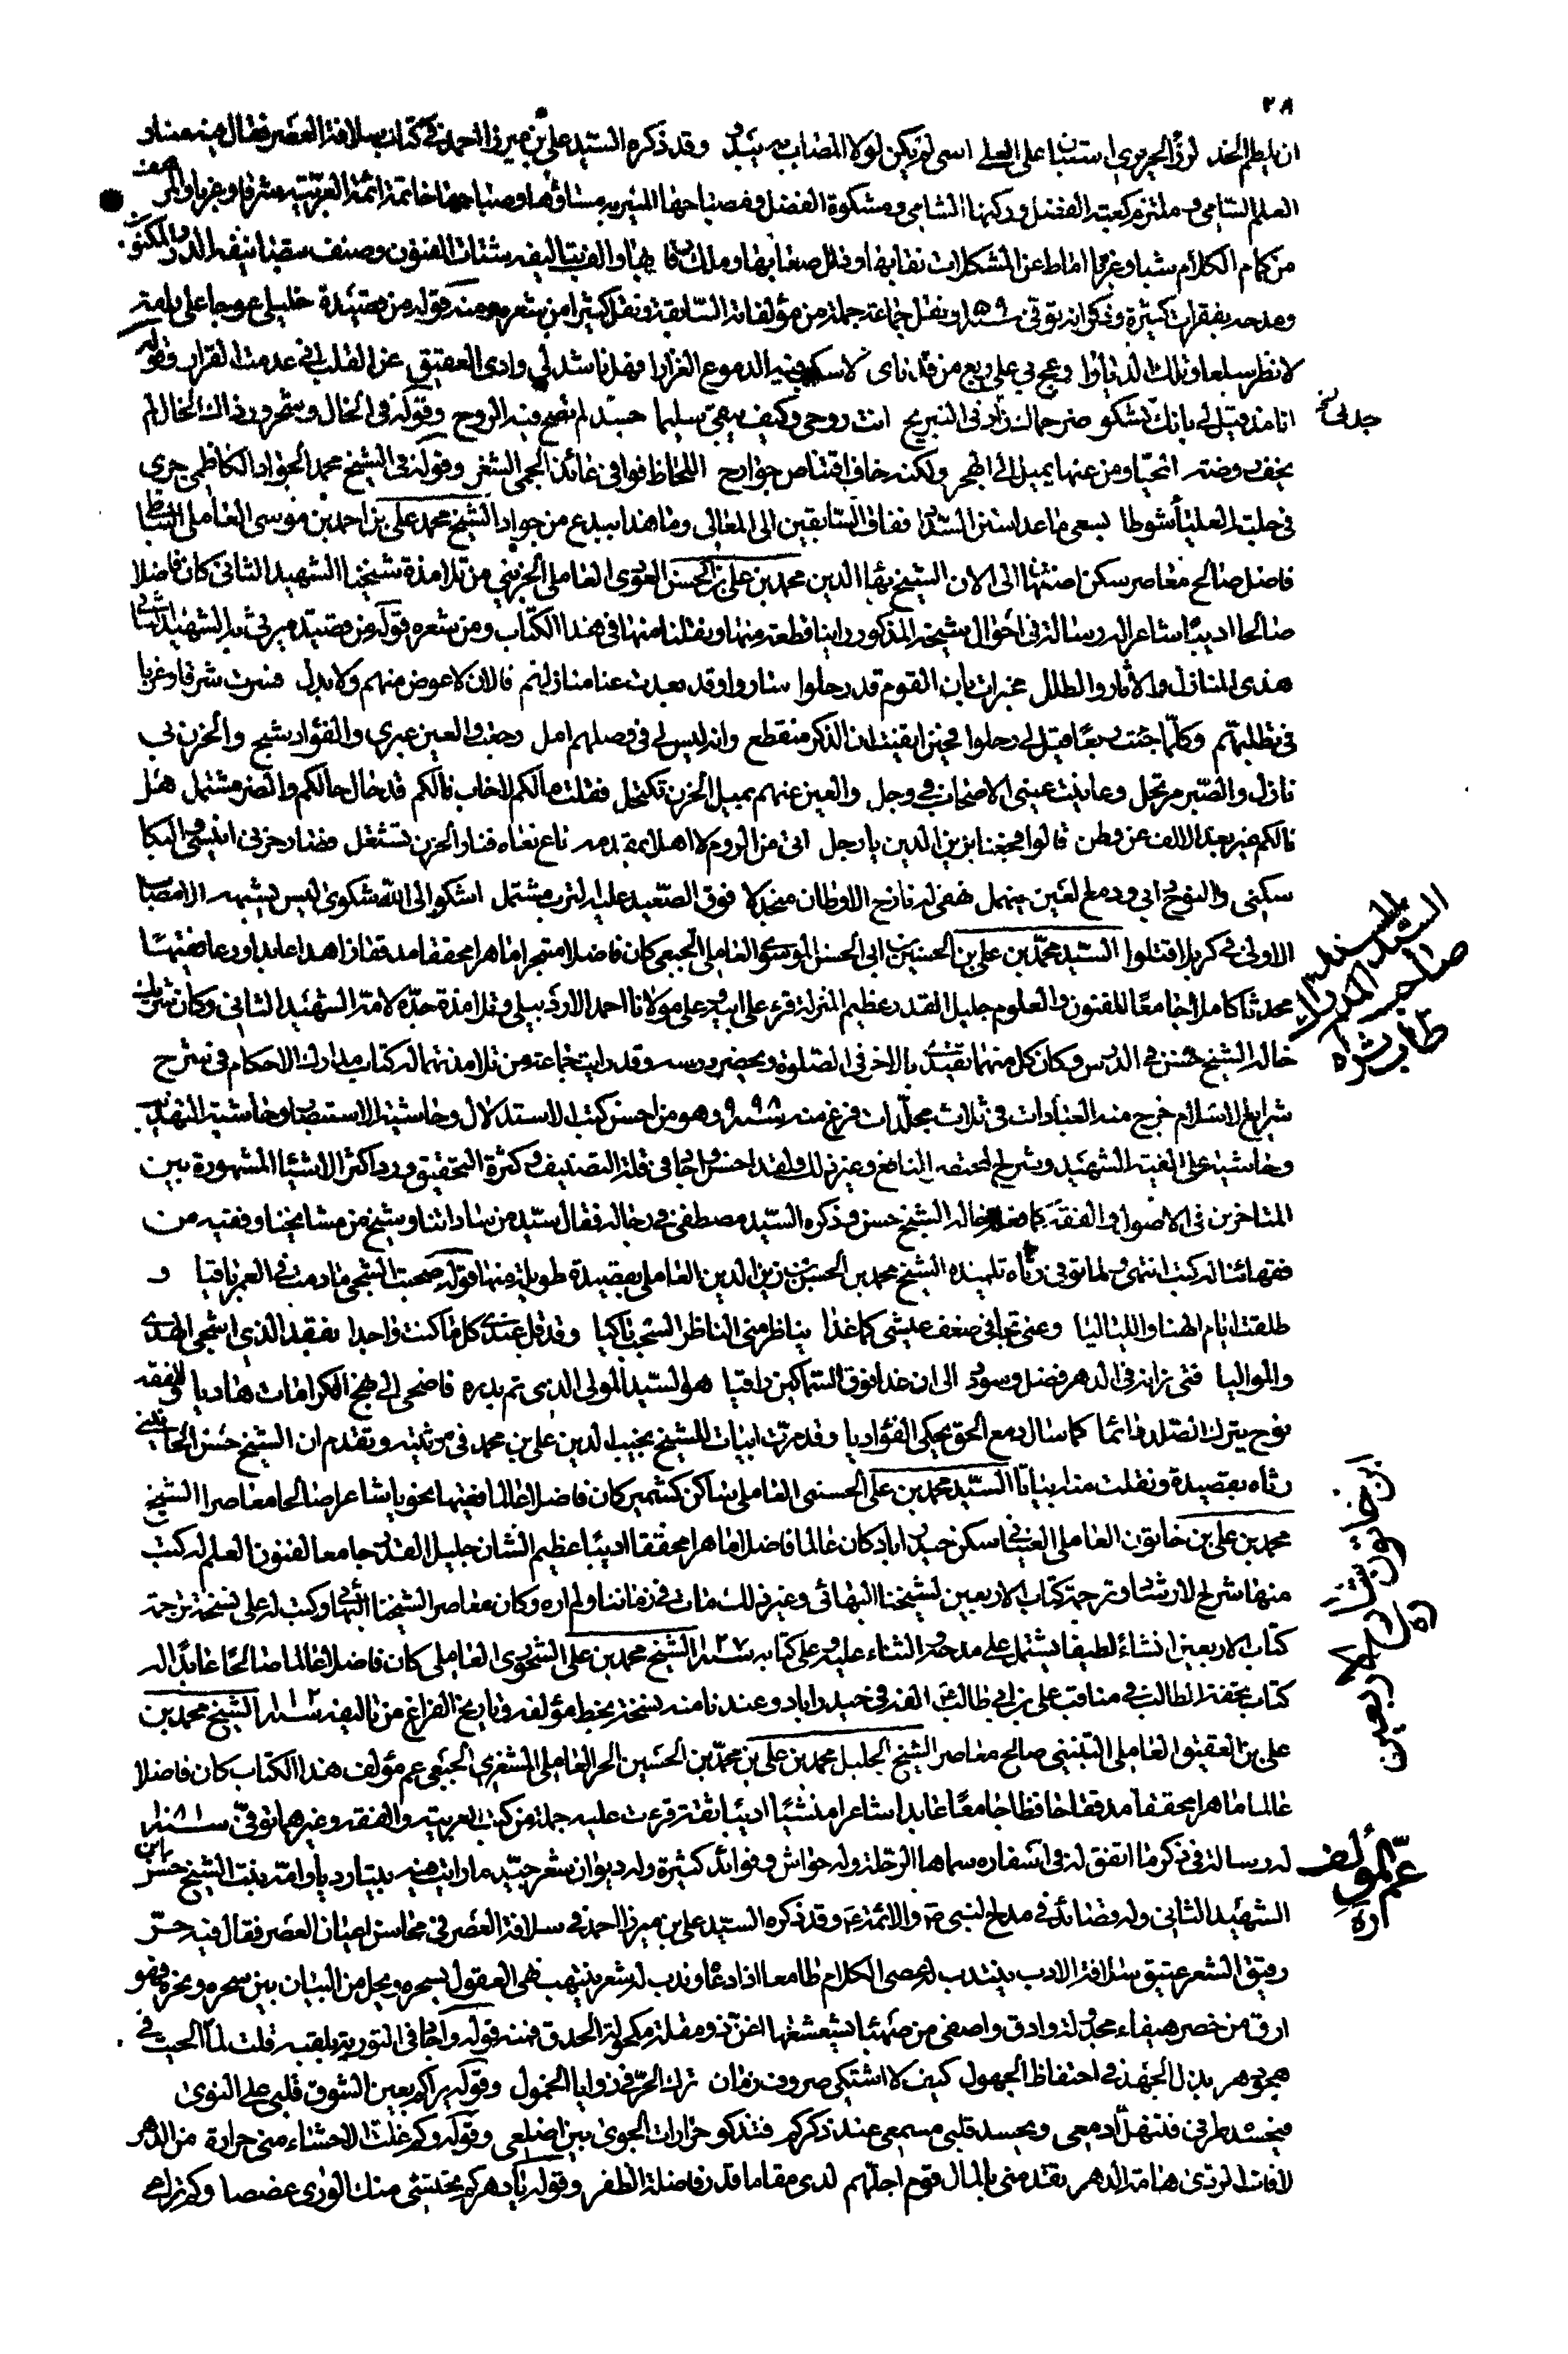 ٢٨
ان يلطم الخد لرزء الحريري استبان على العلى اسى لم يكن لولا المصاب به يبدو وقد ذكره السيد علي بن ميرزا احمد في كتاب سلافة العصر فقال فيه منار
العلم السامي وملتزم كعبة الفضل وركنها الشامي ومشكوة الفضل ومصباحها المنير به مساؤها وصباحها خاتمة ائمة العربية شرقا وغربا والمرهف
من كهام الكلام شبا وغربا اماط عن المشكلات نقابها وذلل صعابها وملك رقابها والف بتاليفه شتات الفنون وصنف بتصانيفه الدر المكنون
ومدحه بفقرات كثيرة وذكر انه توفي سنة ١٠٥٩ ونقل جماعة جملة من مؤلفاته السابقة ونقل كثيرا من شعره ومنه قوله من قصيدة خليلي عوجا على رامة
لانظر سلعا وتلك الديارا وعج بي على ربع من قد نأى لاسكب فيه الدموع الغزارا فهل ناشد لي وادي العقيق عن القلب اني عدمت القرار وقوله
انا مذ قيل لي بانك تشكو ضر حمالك زاد بي التبريح انت روحي وكيف يبقى سليما جسد لم تصح فيه الروح وقوله في الخال وشحرور ذاك الخال لم
جد لي نخ
يجف روضة المحيا ومن عنها يميل الى الهجر ولكنه خاف اقتناص جوارح اللحاظ فوافى عائذا بحمى الثغر وقوله في الشيخ محمد الجواد الكاظمي جرى
في حلبة العليا أشوطا بسعي ما عدا سنن السداد ففاق السابقين الى المعالي وما هذا ببدع من جواد الشيخ محمد علي بن احمد بن موسى العاملي النباطي
فاضل صالح معاصر سكن اصفهان الى الان الشيخ بهاء الدين محمد بن علي بن الحسن العودي العاملي الجزيني من تلامذة شيخنا الشهيد الثاني كان فاضلا
صالحا اديبا شاعرا له رسالة في احوال شيخه المذكور راينا قطعة منها ونقلنا منها في هذا الكتاب ومن شعره قوله من قصيدة يرثي بها الشهيد الثاني
هذي المنازل والآثار والطلل مخبرات بان القوم قد رحلوا ساروا وقد بعدت عنا منازلهم فالان لا عوض منهم ولا بدل فسرت شرقا وغربا
في تطلبهم وكلما جئت ربعا قيل لي رحلوا فحين ايقنت ان الذكر منقطع وانه ليس لي في وصلهم امل رجعت والعين عبرى والفؤاد شج والحزن بي
نازل والصبر مرتحل وعاينت عيني الاصحاب في وجل والعين منهم بميل الحزن تكتحل فقلت ما لكم لا خاب فالكم قد حال حالكم والضر مشتمل هل
نالكم غير بعد الالف عن وطن قالوا فجعنا بزين الدين يا رجل اتى من الروم لا اهلا بمقدمه ناع نعاه فنار الحزن تشتعل فصار حزني انيسي والبكا
سكني والنوح دابي ودمع العين ينهمل لهفي له نازح الاوطان منجدلا فوق الصعيد عليه الترب مشتمل اشكو الى الله شكوى ليس يشبهه الا مصاب
الاولى في كربلا قتلوا السيد محمد بن علي بن الحسين بن ابي الحسن الموسوي العاملي الجبعي كان فاضلا متبحرا ماهرا محققا مدققا زاهدا عابدا ورعا فقيها
السيد السند
صاحب المدارك
طاب ثراه
محدثا كاملا جامعا للفنون والعلوم جليل القدر عظيم المنزلة قرء على ابيه وعلى مولانا احمد الاردبيلي وتلامذة جده لامه الشهيد الثاني وكان شريك
خاله الشيخ حسن في الدرس وكان كل منهما يقتدي بالاخر في الصلوة ويحضر درسه وقد رايت جماعة من تلامذتهما له كتاب مدارك الاحكام في شرح
شرايع الاسلام خرج منه العبادات في ثلاث مجلدات فرغ منه سنة ٩٩٨ وهو من احسن كتب الاستدلال وحاشية الاستبصار وحاشية التهذيب
وحاشية على الفية الشهيد وشرح المختصر النافع وغير ذلك ولقد احسن واجاد في قلة التصنيف وكثرة التحقيق ورد اكثر الاشياء المشهورة بين
المتاخرين في الاصول والفقه كما فعله خاله الشيخ حسن وذكره السيد مصطفى في رجاله فقال سيد من ساداتنا وشيخ من مشايخنا وفقيه من
فقهائنا له كتب انتهى ولما توفي رثاه تلميذه الشيخ محمد بن الحسن بن زين الدين العاملي بقصيدة طويلة منها قوله صحبت الشجى ما دمت في العمر باقيا و
طلقت ايام الهنا واللياليا وعني تجافى صفو عيشي كما غدا يناظر مني الناظر السحب باكيا وقد قل عندي كل ما كنت واجدا بفقد الذي اشجى الهدى
والمواليا فتى زانه في الدهر فضل وسودد الى ان غدا فوق السماكين راقيا هو السيد المولى الذي تم بدره فاضحى الى نهج الكرامات هاديا وللفقه
نوح يترك الصلد دائما كما سال دمع الحق يحكي الغواديا وقد مرت ابيات للشيخ نجيب الدين علي بن محمد في مرثيته وتقدم ان الشيخ حسن الحانيني
رثاه بقصيدة ونقلت منه ابياتا السيد محمد بن علي الحسني العاملي ساكن كشمير كان فاضلا عالما فقيها نحويا شاعرا صالحا معاصرا الشيخ
محمد بن علي بن خاتون العاملي العيناثي سكن حيدر اباد كان عالما فاضلا ماهرا محققا اديبا عظيم الشان جليل القدر جامعا لفنون العلم له كتب
ابن خاتون شارح الاربعين ره
منها شرح الارشاد وترجمة كتاب الاربعين لشيخنا البهائي وغير ذلك مات في زماننا ولم اره وكان معاصرا لشيخنا البهائي وكتب له على نسخة ترجمة
كتاب الاربعين انشاء لطيفا يشتمل على مدحه والثناء عليه وعلى كتابه سنة ١٠٢٧ الشيخ محمد بن علي الشحوري العاملي كان فاضلا عالما صالحا عابدا له
كتاب تحفة الطالب في مناقب علي بن ابي طالب ع الفه في حيدر اباد وعندنا منه نسخة بخط مؤلفه وتاريخ الفراغ من تاليفه سنة ١٠١٢ الشيخ محمد بن
علي بن العقيق العاملي التبنيني صالح معاصر الشيخ الجليل محمد بن علي بن محمد بن الحسين الحر العاملي المشغري الجبعي عم مؤلف هذا الكتاب كان فاضلا
عالما ماهرا محققا مدققا حافظا جامعا عابدا شاعرا منشيا اديبا ثقة قرءت عليه جملة من كتب العربية والفقه وغيرهما توفي سنة ١٠٨١
عم المؤلف ره
له رسالة في ذكر ما اتفق له في اسفاره سماها الرحلة وله حواش وفوائد كثيرة وله ديوان شعر جيد ما رايت فيه بيتا رديا وامه بنت الشيخ حسن ابن
الشهيد الثاني وله قصائد في مدح النبي ص والائمة ع وقد ذكره السيد علي بن ميرزا احمد في سلافة العصر في محاسن اعيان العصر فقال فيه حر
رقيق الشعر عتيق سلافة الادب ينتدب له عصي الكلام طائعا اذا دعاه وندب له شعر ينتهب نهى العقول بسحره ويحل من البيان بين سحره ونحره فهو
ارق من خصر هيفاء مجدولة وادق واصفى من صهباء تشعشعها اغن ذو مقلة مكحولة الحدق فمنه قوله واجاد في التورية بلقبه قلت لما لحيت في
هجو دهر بذل الجهد في احتفاظ الجهول كيف لا اشتكي صروف زمان ترك الحر في زوايا الخمول وقوله يراكم بعين الشوق قلبي على النوى
فيحسد طرفي فتنهل ادمعي ويحسد قلبي مسمعي عند ذكركم فتذكو حرارات الجوى بين اضلعي وقوله وكم غلت الاحشاء مني حرارة من الدهر
لا فات الردى هامة الدهر بقدمني بالمال قوم اجلهم لدى مقاما قدر فاضلة الظفر وقوله يا دهر كم يحتشي منك الورى غصصا وكم تراعي